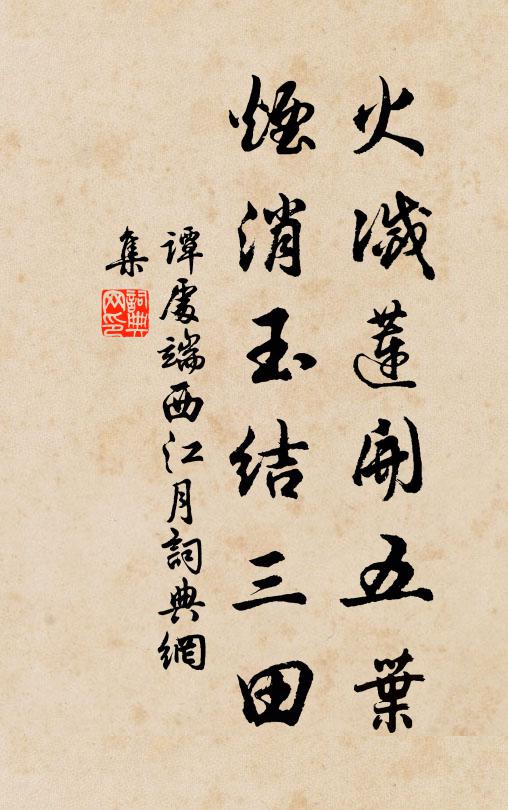 火滅蓮開五葉
煙消玉結三田
譚處端西江月詞典網
集
詞典
网印